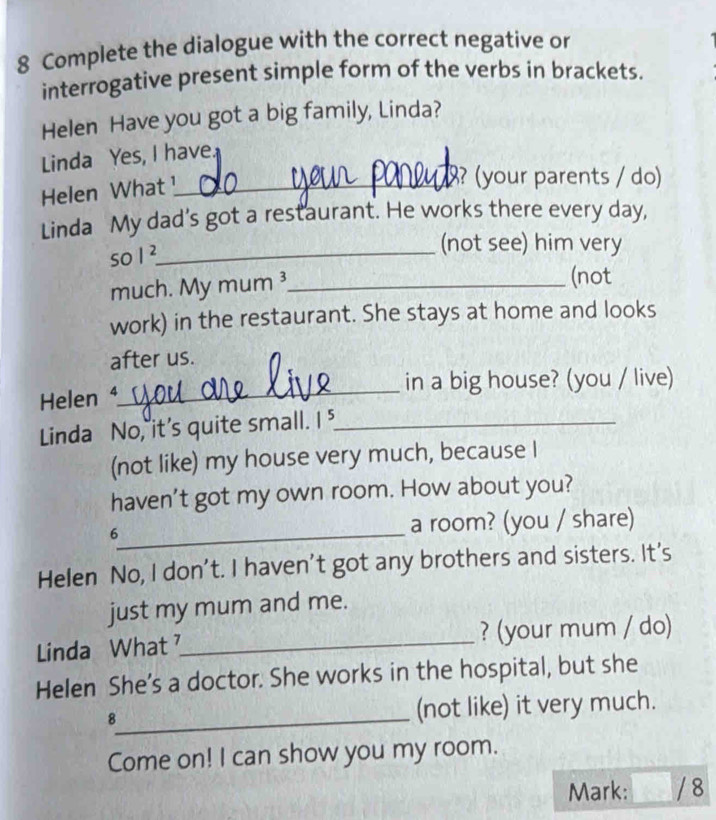 8 Complete the dialogue with the correct negative or
interrogative present simple form of the verbs in brackets.
Helen Have you got a big family, Linda?
Linda Yes, I have.
Helen What ¹ do your parents? (your parents / do)
Linda My dad's got a restaurant. He works there every day,
so I ²____________ (not see) him very
much. My mum ³____________ (not
work) in the restaurant. She stays at home and looks
after us.
Helen ⁴ you are live in a big house? (you / live)
Linda No, it's quite small. I ⁵____________
(not like) my house very much, because I
haven't got my own room. How about you?
⁶____________ a room? (you / share)
Helen No, I don't. I haven't got any brothers and sisters. It's
just my mum and me.
Linda What ⁷____________? (your mum / do)
Helen She's a doctor. She works in the hospital, but she
⁸____________ (not like) it very much.
Come on! I can show you my room.
Mark: / 8